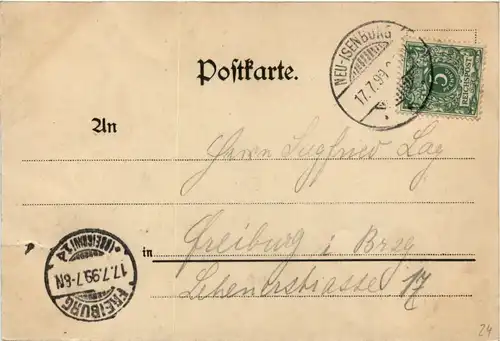 NEU-ISENBURG
17.7.99
REICHSPOST
Postkarte.
An
Herrn Siegfried Lag
in Freiburg i Brsg
Lehenerstrasse 17
FREIBURG
17.7.99.7-8N
(BREISGAU) 1 d
24